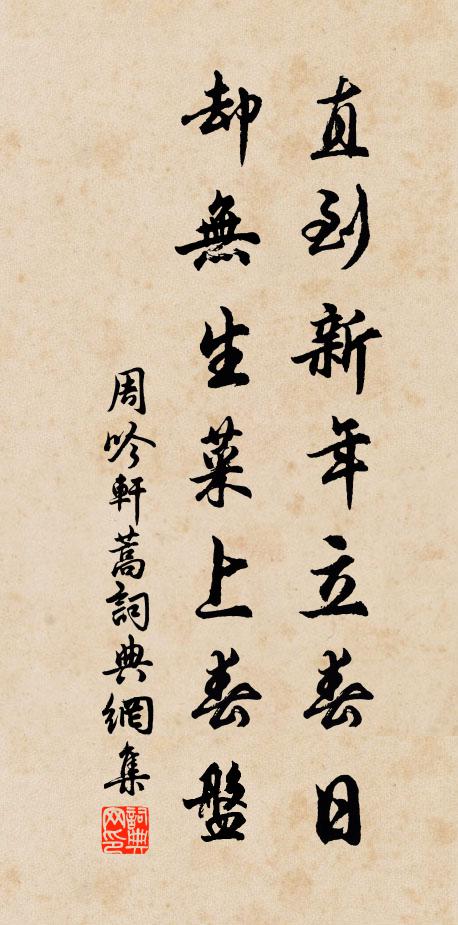 直到新年立春日
却無生菜上春盤
周吟軒蒿詞典網集
詞典网印